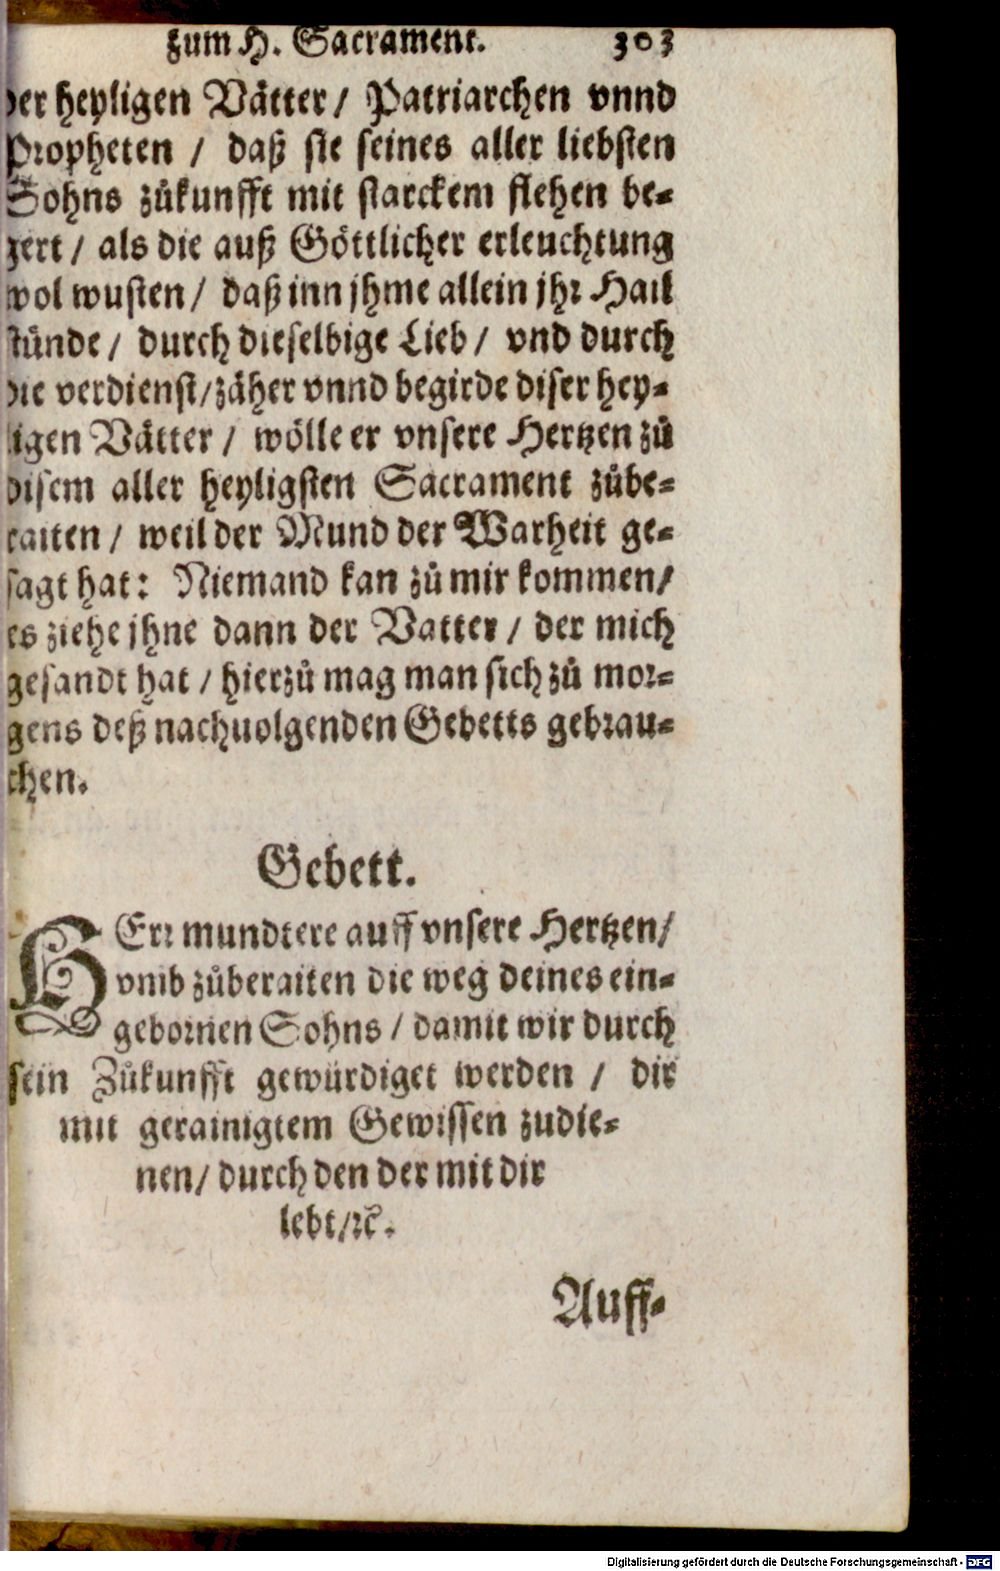 zum H. Sacrament. 303
der heyligen Vätter / Patriarchen vnnd
Propheten / daß sie seines aller liebsten
Sohns zůkunfft mit starckem flehen be-
gert / als die auß Göttlicher erleuchtung
wol wusten / daß inn jhme allein jhr Hail
stünde / durch dieselbige Lieb / vnd durch
die verdienst / zäher vnnd begirde diser hey-
ligen Vätter / wölle er vnsere Hertzen zů
disem aller heyligsten Sacrament zůbe-
raiten / weil der Mund der Warheit ge-
sagt hat: Niemand kan zů mir kommen /
es ziehe jhne dann der Vatter / der mich
gesandt hat / hierzů mag man sich zů mor-
gens deß nachuolgenden Gebetts gebrau-
chen.
Gebett.
HErr mundtere auff vnsere Hertzen /
vmb zůberaiten die weg deines ein-
gebornen Sohns / damit wir durch
sein Zůkunfft gewürdiget werden / dir
mit gerainigtem Gewissen zudie-
nen / durch den der mit dir
lebt / ꝛc.
Auff-
Digitalisierung gefördert durch die Deutsche Forschungsgemeinschaft - DFG